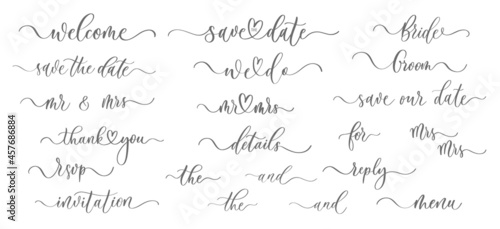 welcome
save the date
mr & mrs
thank♡you
rsvp
invitation
save♡date
we♡do
mr♡mrs
details
the and
the and
Bride
Groom
save our date
for Mrs
Mrs
reply
menu
Adobe Stock | #457686884